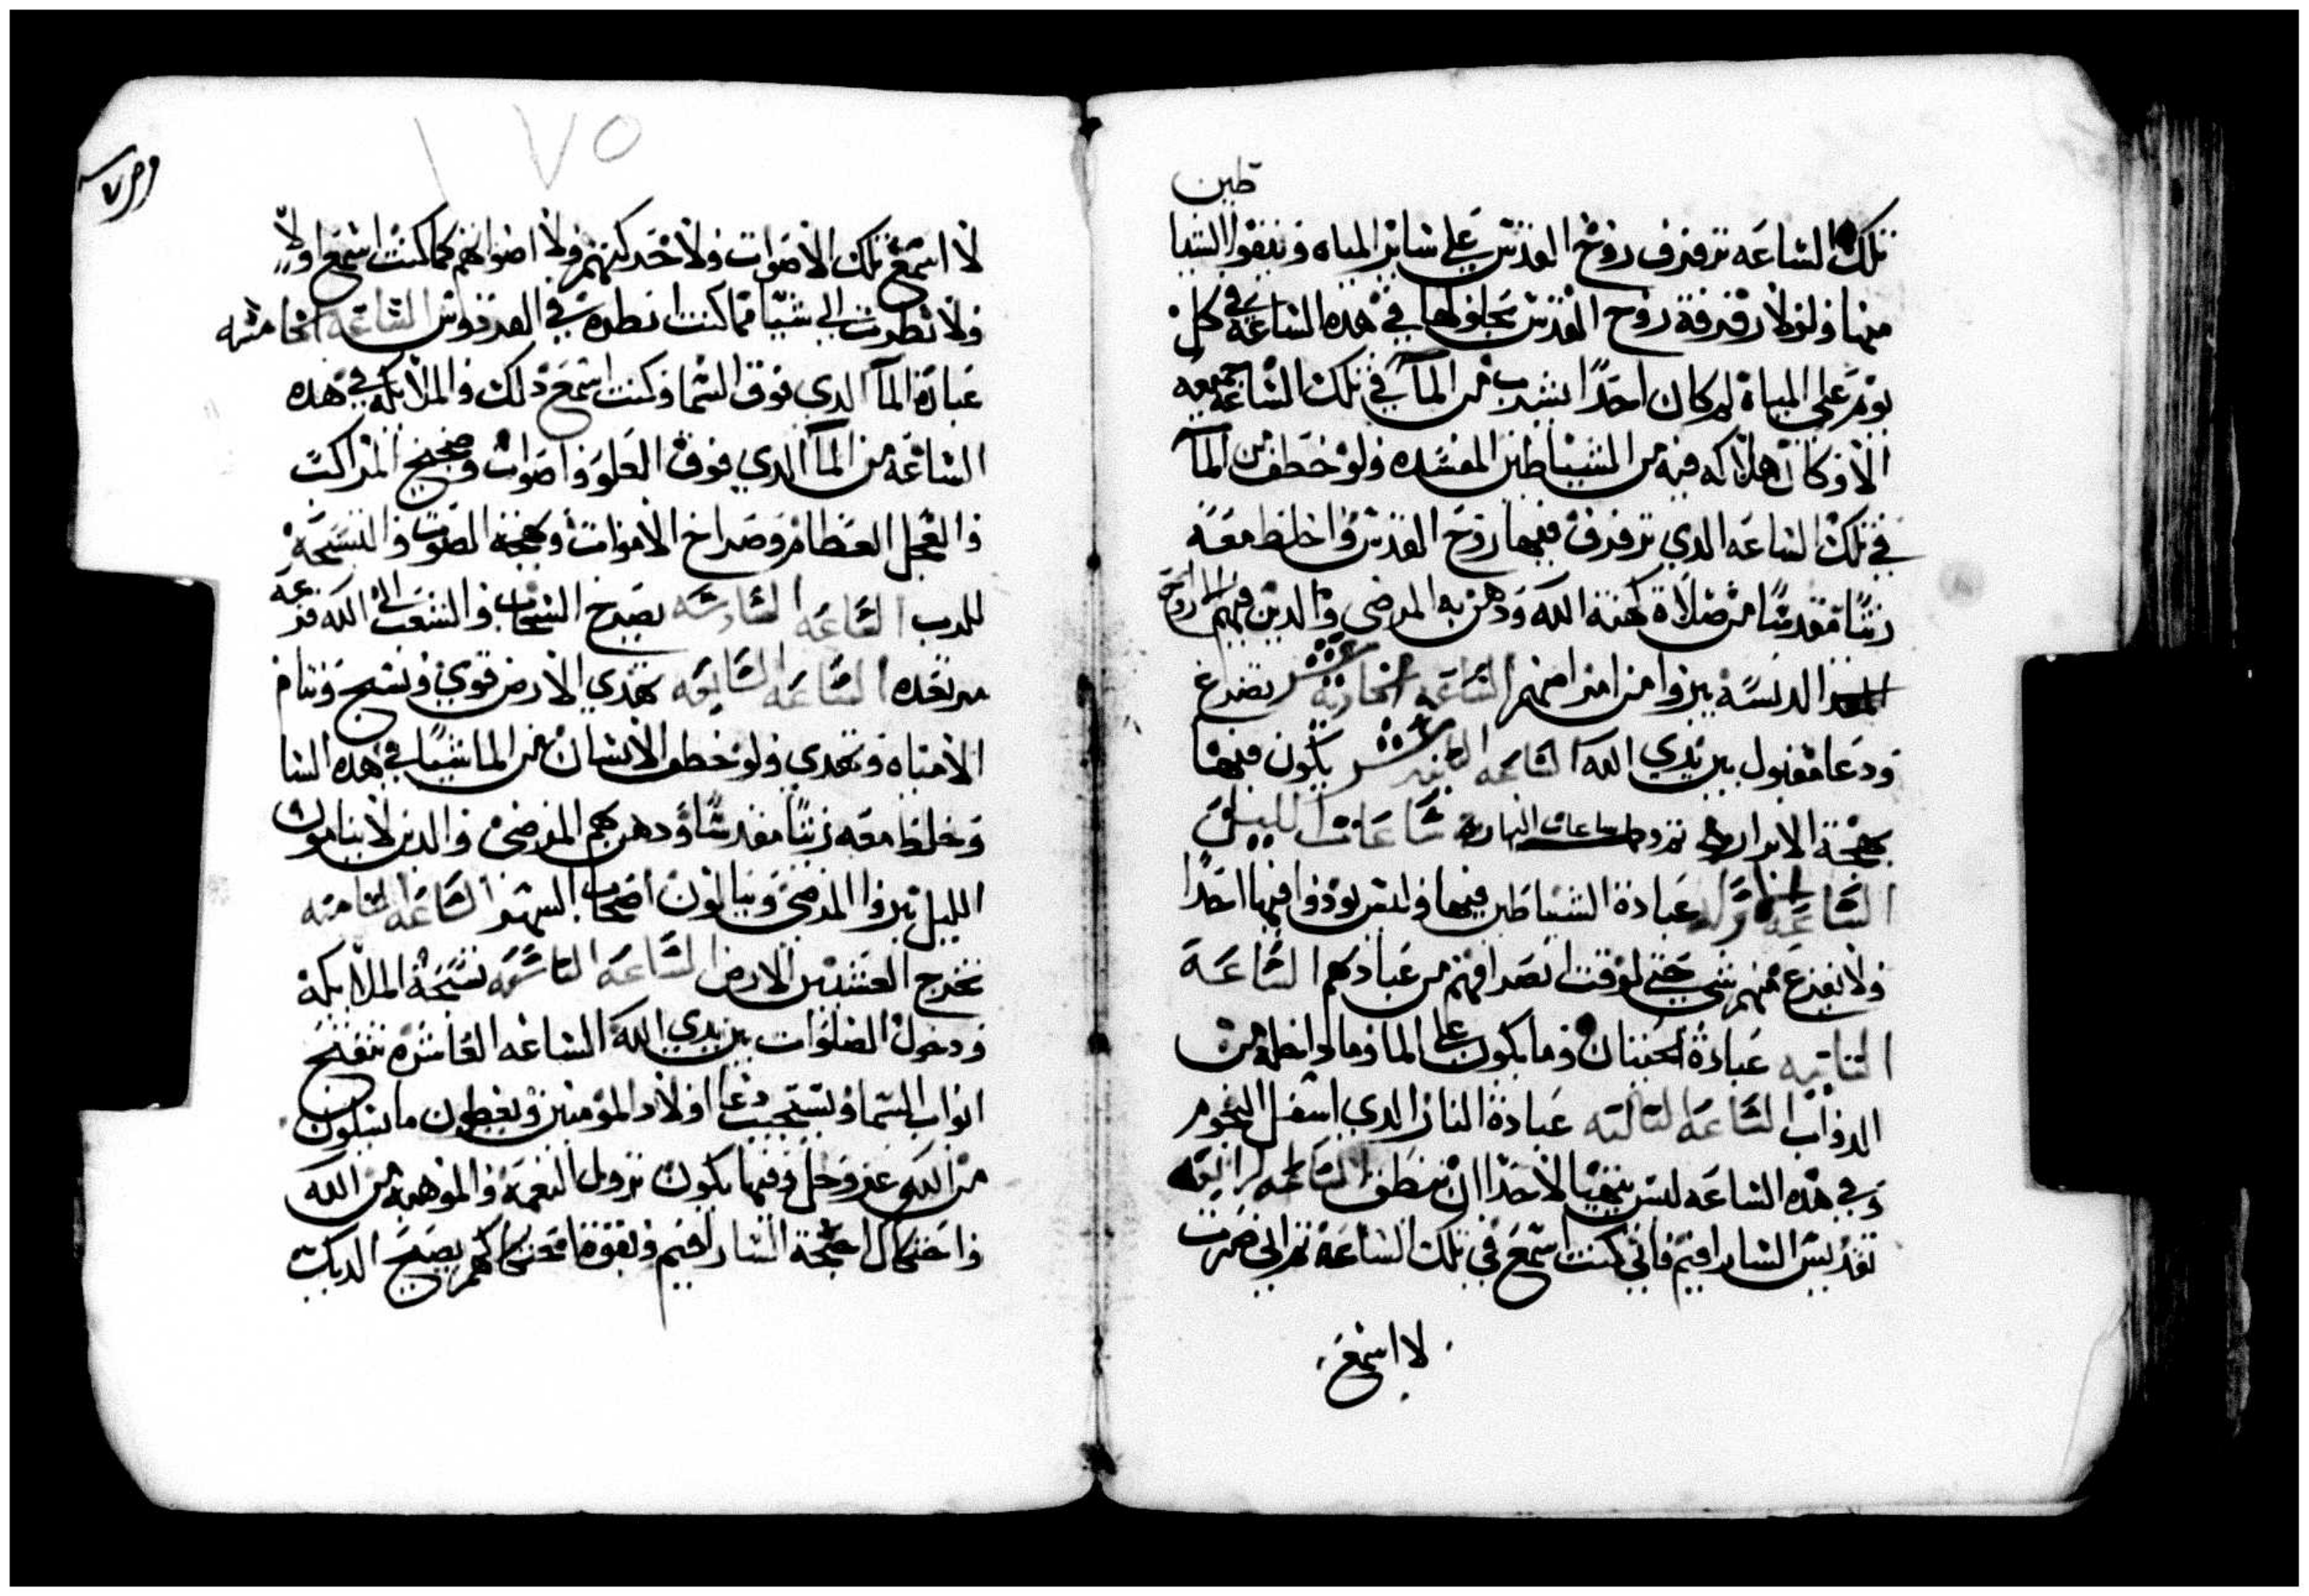 طين
تلك الساعه ترفرف روح القدس علي ساير المياه وينفوا الشيا
منها ولولا رفرفة روح القدس بحلولها في هده الساعة في كل
يوم علي المياة لم كان احدًا يشرب من المآ في تلك الساعة جميعه
الا وكان هلاكه فيه من الشياطين المفسده ولو خطف من المآ
في تلك الساعه الدي ترفرف فيها روح القدس واخلط معه
زيتًا مقدسًا من صلاة كهنة الله ودهن به المرضي والدين فيهم الارواح
الدنسة يبروا من امراضهم الساعه الحادية عشر تضرع
ودعا مقبول بين يدي الله الساعه التانيه عشر يكون فيها
بهجة الابرار ساعات النهار ساعات الليل
الساعه عبادة الشياطين فيها وليس يودوا فيها احدًا
ولا يفزع منهم شي حتي لوقت انصرافهم من عبادتهم الساعة
التانيه عبادة الحيتان وما يكون علي الما وما داخله من
الدواب الساعه التالته عبادة النار الدي اسفل التخوم
وفي هده الساعه ليس يتهيا لاحدا ان ينطق الساعه الرابعه
تقديس السارافيم فاني كنت اسمع في تلك الساعة
لا اسمع
١٧٥
لا اسمع تلك الاصوات ولا حركتهم ولا اصواتهم كما كنت اسمع اولاً
ولا نظرت الي شيا مما كنت انظره في الفردوس الساعه الخامسه
عبادة المآ الدي فوق السما وكنت اسمع دلك والملايكه في هده
الساعة من المآ الدي فوق العلو واصوات وضجيج المراكب
والعجل العظام وصراخ الاموات وبهجة الصوت والتسبحة
للرب الساعه السادسه يصرخ السحاب والشعب الى الله فزعه
مرتعده الساعه السابعه تهدي الارض قوي وتسبح وتنام
الامياه وتهدي ولو خطف الانسان من الما شيا في هده السا
وخلط معه زيتًا مقدسًا ودهن بهم المرضى والدين لا يناموا
الليل يبروا المرضى وينالون اصحاب السهر الساعه التامنه
تخرج العشب من الارض الساعه التاسعه تسبحة الملايكة
ودخول الصلوات بين يدي الله الساعه العاشره تنفتح
ابواب السما ويستجيب دعا اولاد المومنين ويعطون ما يسلون
من الله عز وجل وفيها يكون نزول النعمه والموهبه من الله
واحتكاك اجنحة السارافيم وبقوة احتكاكهم يصيح الديك